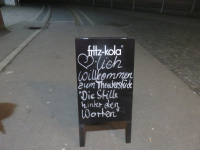 fritz-kola
♡lich
willkommen
zum Theaterstück
"Die Stille
hinter den
Worten"